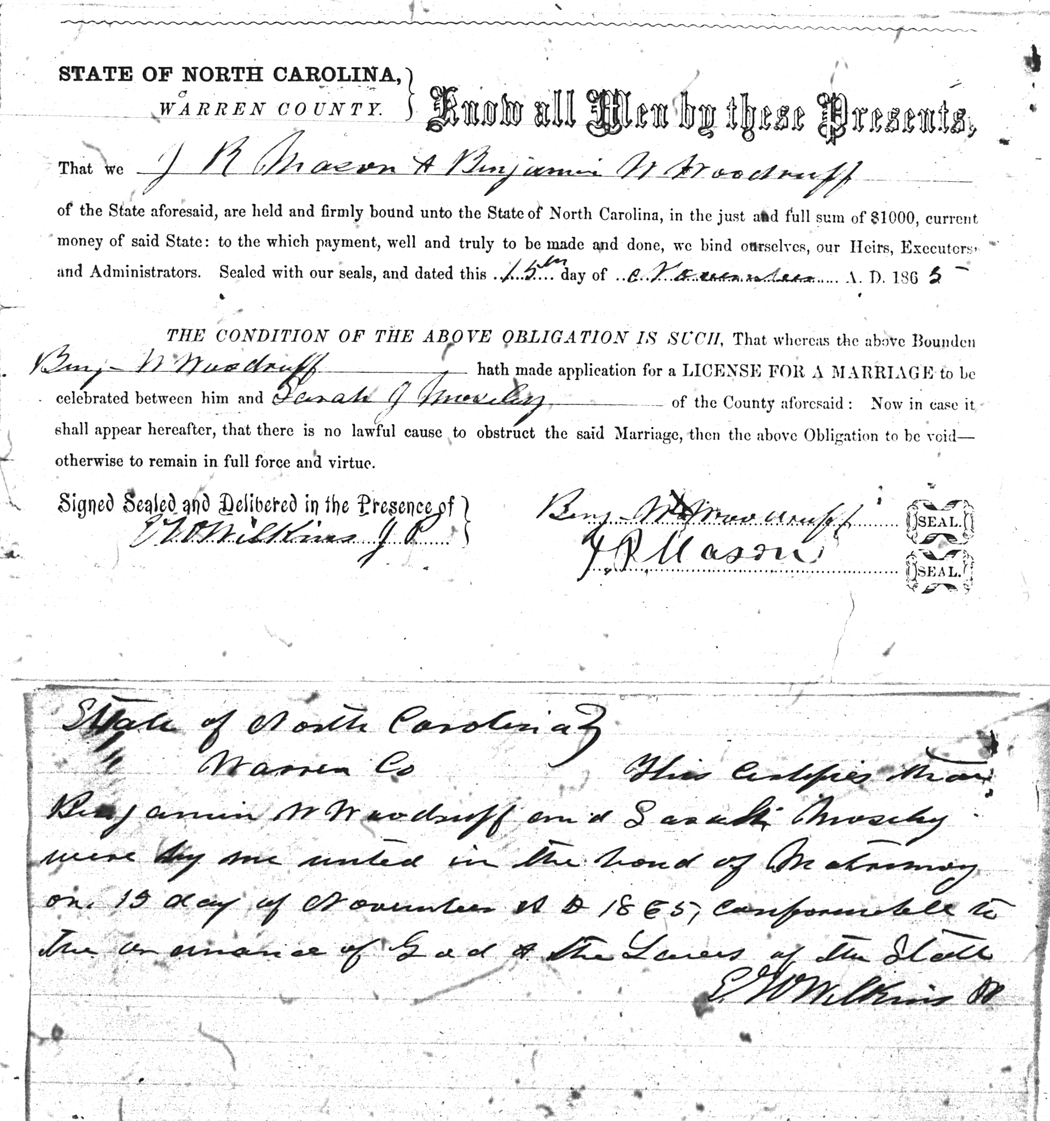 STATE OF NORTH CAROLINA,
WARREN COUNTY.
Know all Men by these Presents,
That we J R Mason & Benjamin W Woodruff
of the State aforesaid, are held and firmly bound unto the State of North Carolina, in the just and full sum of $1000, current
money of said State: to the which payment, well and truly to be made and done, we bind ourselves, our Heirs, Executors
and Administrators. Sealed with our seals, and dated this 15th day of November A. D. 1865
THE CONDITION OF THE ABOVE OBLIGATION IS SUCH, That whereas the above Bounden
Benj- W Woodruff hath made application for a LICENSE FOR A MARRIAGE to be
celebrated between him and Sarah J Moseley of the County aforesaid: Now in case it
shall appear hereafter, that there is no lawful cause to obstruct the said Marriage, then the above Obligation to be void—
otherwise to remain in full force and virtue.
Signed Sealed and Delivered in the Presence of
Benj- W Woodruff SEAL.
E W Wilkins J P
J. R. Mason SEAL.
State of North Carolina
" Warren Co This certifies that
Benjamin W Woodruff and Sarah Moseley
were by me united in the bond of Matrimony
on 19 day of November A D 1865, conformable to
the ordinance of God & the Laws of the State
E W Wilkins